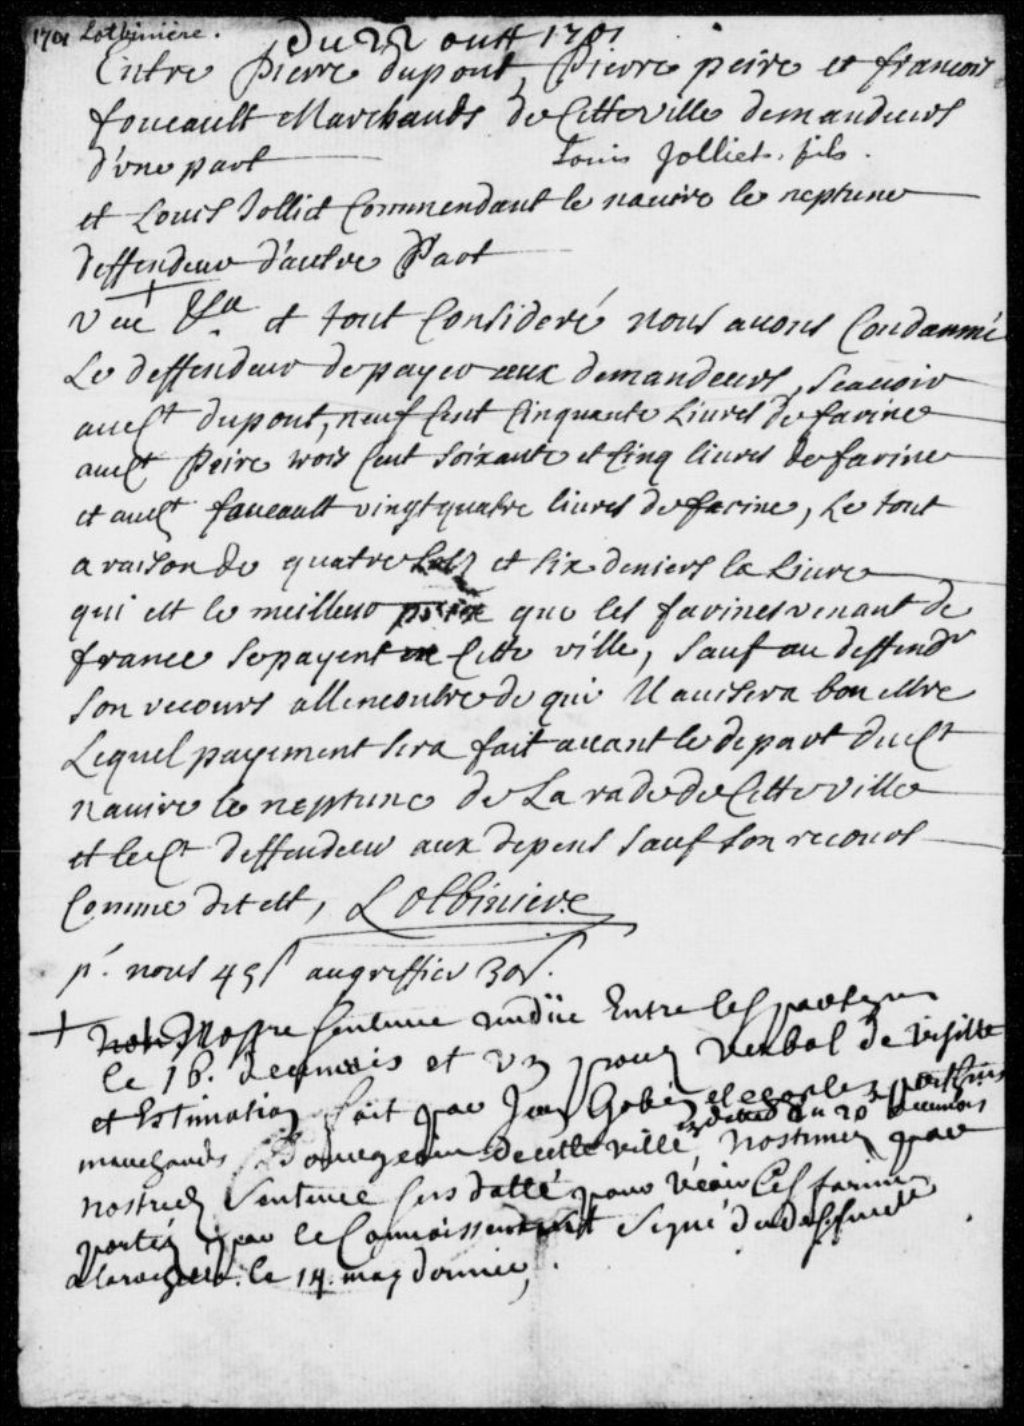 1701 Lotbinière.
Du 22 oust 1701
Entre Pierre dupont, Pierre peire et francois
foucault Marchands de Cette ville demandeurs
d'une part
Louis Jolliet. fils.
et Louis Jolliet Commendant le navire le neptune
deffendeur d'autre Part
+
Veu &a et tout Consideré nous avons Condamné
Le deffendeur de payer aux demandeurs, Scavoir
audt dupont, neuf Cent Cinquante Livres de farine
audt Peire trois Cent soixante et Cinq livres de farine
et audt foucault vingt quatre livres de farine, Le tout
a raison de quatre solz et six deniers la Livre
qui est le meilleur prix que les farines venant de
france se payent en Cette ville, Sauf au deffendr
Son recours allencontre de qui Il avisera bon estre
Lequel payement sera fait avant le depart dudt
navire le neptune de La rade de Cette ville
et ledt deffendeur aux depens sauf son recours
Comme dit est, Lotbiniere
pr. nous 45s au greffier 30s.
+ Nostre sentence rendüe Entre les parties
le 16. de ce mois et Un verbal de visitte
et Estimation fait par Jean Gobin et
marchands Bourgeois de cette ville du 20e de ce mois
Sentence sus datté pour les farines
par le Connoissement Signé du deffendr
le 14. may dernier,